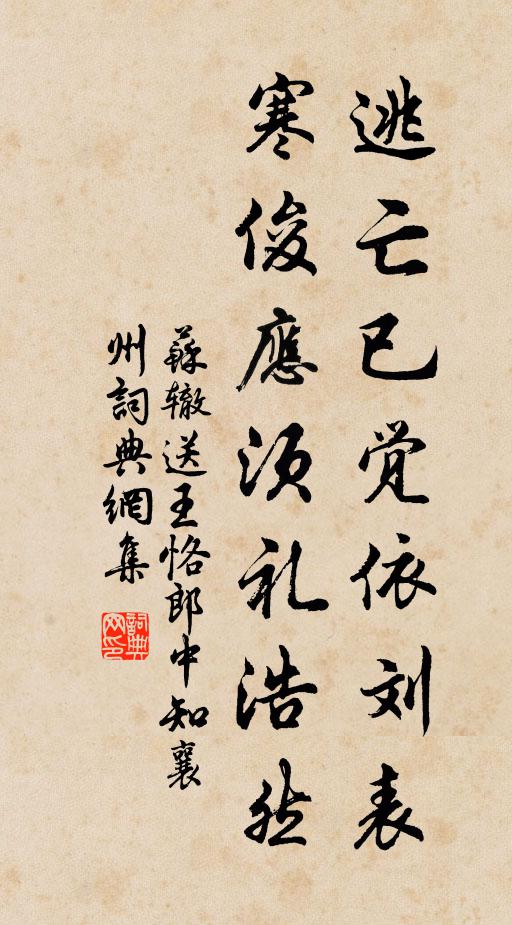 逃亡已觉依刘表
寒俊應须礼浩然
蘇辙送王恪郎中知襄
州詞典網集
詞典网印